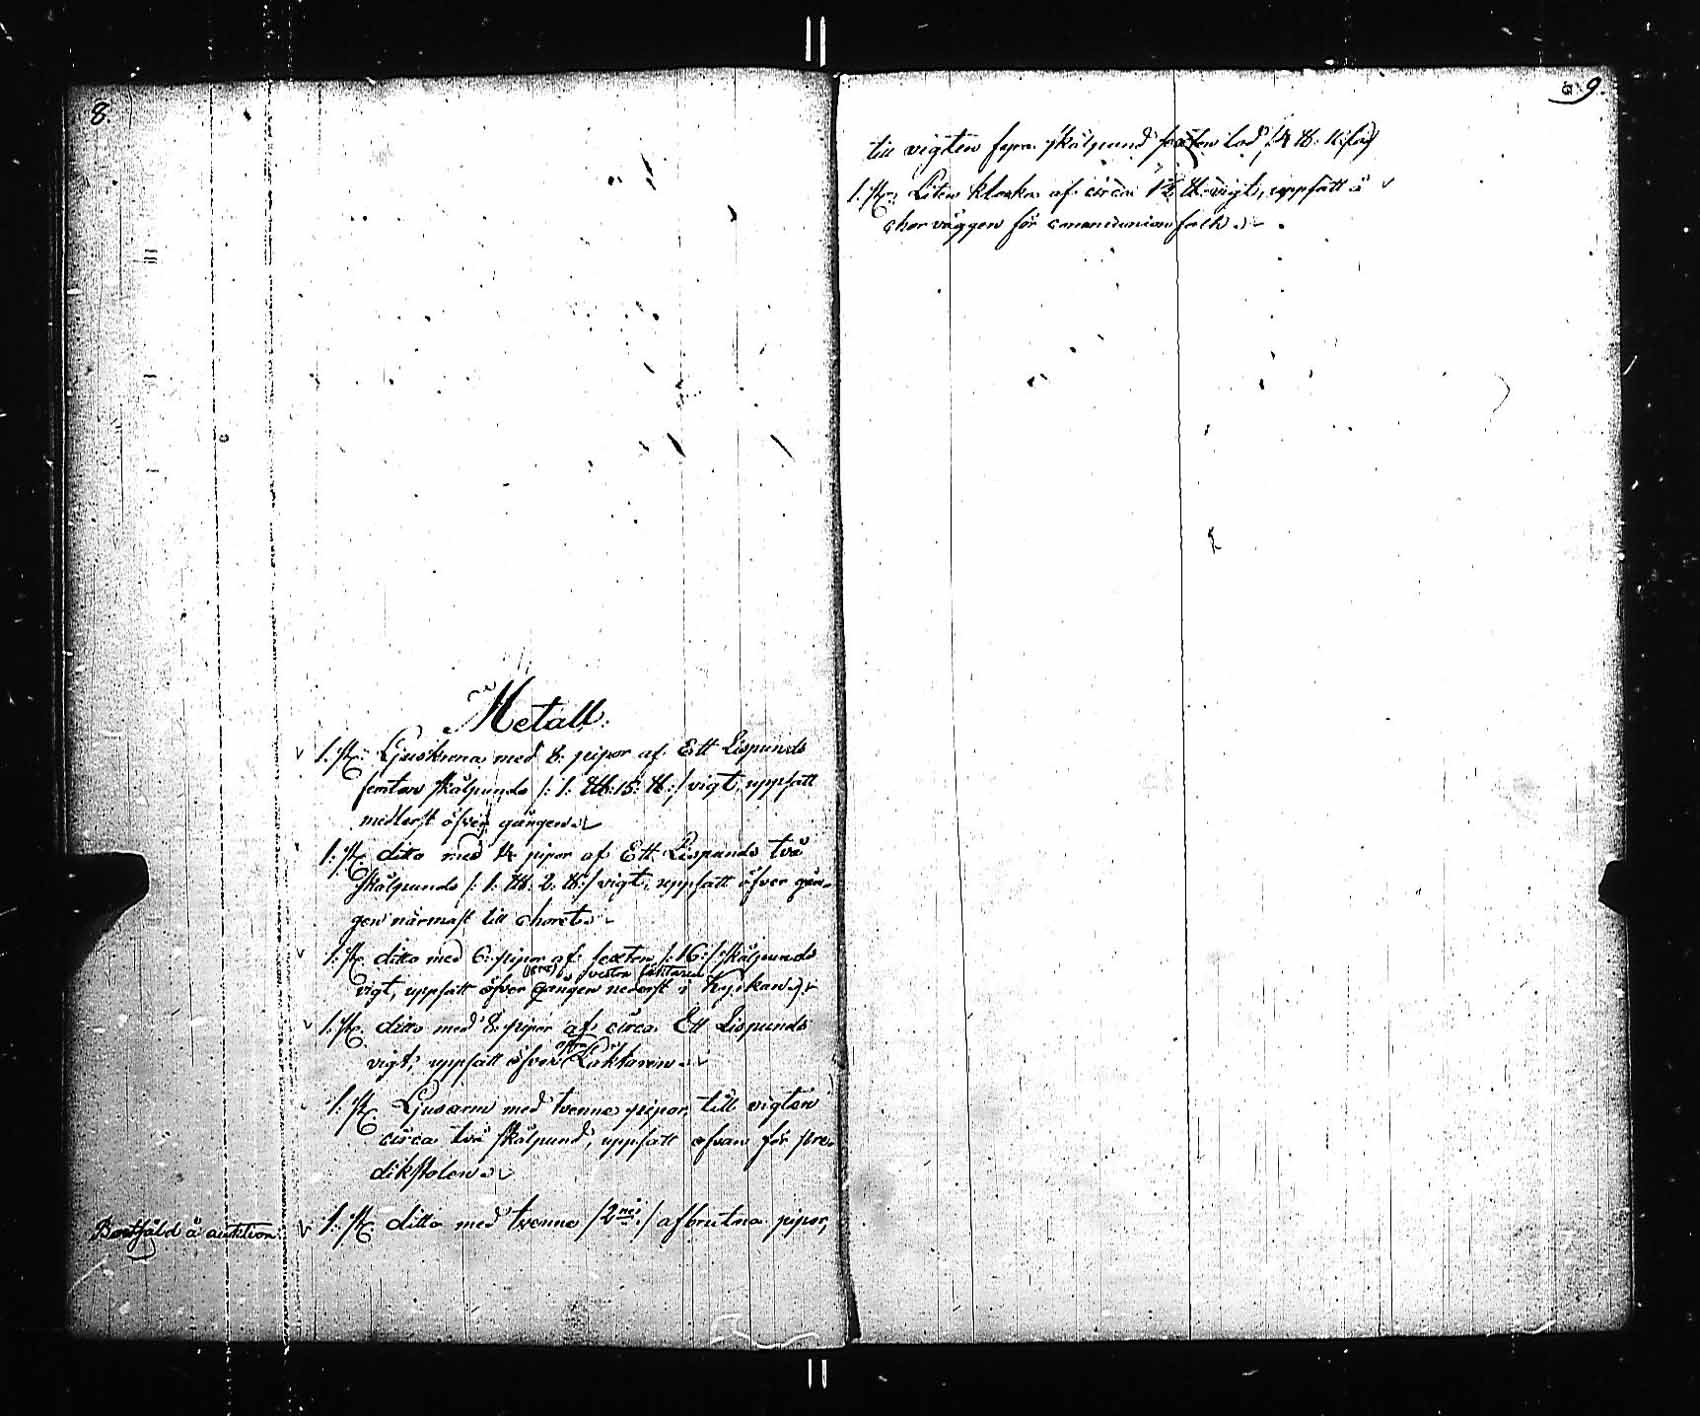 8.
Metall.
1. st. Ljuskrona med 8. pipor af Ett Lispunds
femton skålpunds /: 1. L℔: 15. ℔ :/ vigt, uppsatt
medlerst öfver gången.
1. st. ditto med 14 pipor af Ett Lispunds två
skålpunds /: 1. L℔. 2. ℔ :/ vigt, uppsatt öfver gån-
gen närmast till choret.
1. st. ditto med 6. pipor af sexton /: 16 :/ skålpunds
vestra läktaren
vigt, uppsatt öfver gången nederst i Kyrkan.
1. st. ditto med 8. pipor af circa Ett Lispunds
vigt, uppsatt öfver Läktaren.
1. st. Ljusarm med tvenne pipor, till vigten
circa två skålpund, uppsatt ofvan för pre-
dikstolen.
Bortsåld å auktion.
1. st. ditto med tvenne /2ne/ afbrutna pipor,
9.
till vigten fyra skålpund sexton lod /: 4 ℔: 16 lod
1. st. Liten klocka af circa 1½ ℔ vigt, uppsatt å
chor väggen för communion folk.